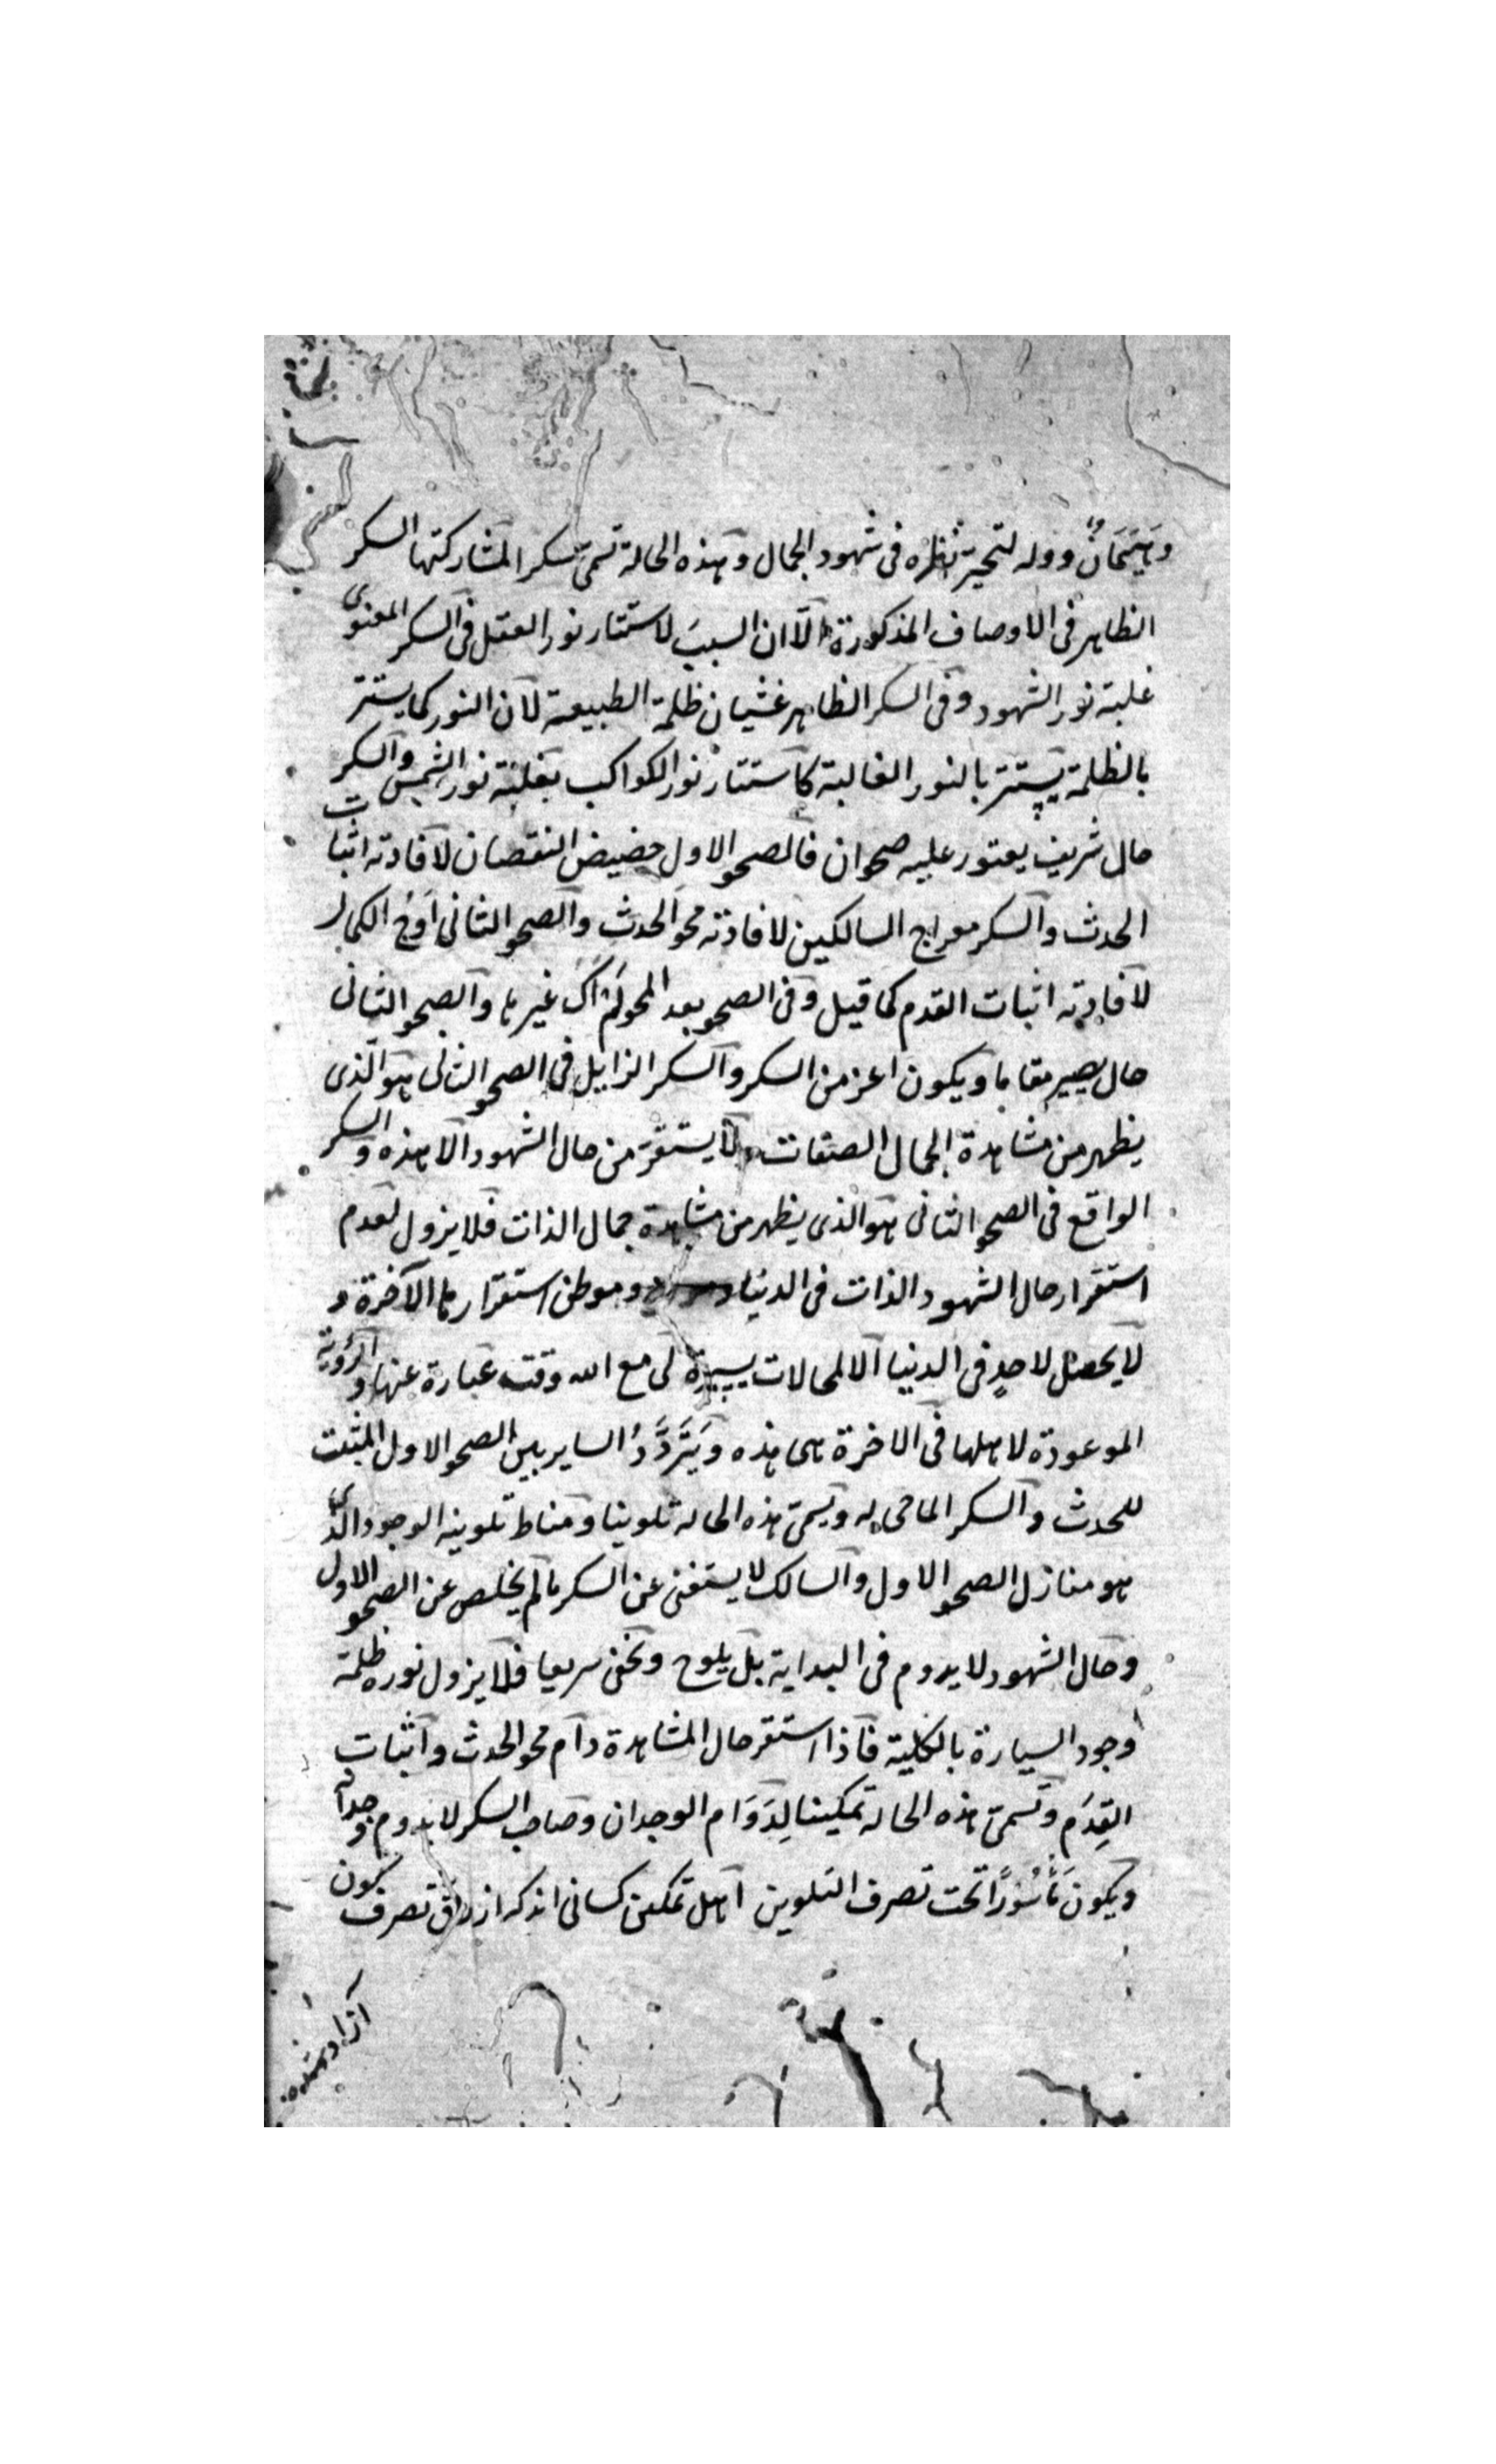 وهَيَمَانٌ ووله لتحير نظره فى شهود الجمال وهذه الحالة تسمى سكرا لمشاركتها السكر
الظاهر فى الاوصاف المذكورة الا ان السبب لاستتار نور العقل فى السكر المعنوى
غلبة نور الشهود وفى السكر الظاهر غشيان ظلمة الطبيعة لان النور كما يستتر
بالظلمة يستتر بالنور الغالبة كاستتار نور الكواكب بغلبة نور الشمس والسكر
حال شريف يعتور عليه صحوان فالصحو الاول حضيض النقصان لافادته اثبات
الحدث والسكر معراج السالكين لافادته محو الحدث والصحو الثانى اَوْج الكمال
لافادته اثبات القدم كما قيل وفى الصحو بعد المحو لم اك غيرها والصحو الثانى
حال يصير مقاما ويكون اعز من السكر والسكر الزايل فى الصحو الثانى هو الذى
يظهر من مشاهدة الجمال الصفات ولا يستقر من حال الشهود الا هذه والسكر
الواقع فى الصحو الثانى هو الذى يظهر من مشاهدة جمال الذات فلا يزول لعدم
استقرار حال الشهود الذات فى الدنيا وموطن استقرارها الآخرة و
لا يحصل لاحدٍ فى الدنيا الا لمحالات يسيرة لى مع الله وقت عبارة عنها والرؤية
الموعودة لاهلها فى الاخرة هى هذه ويَتَرَدَّدُ الساير بين الصحو الاول المثبت
للحدث والسكر الماحى له ويسمى هذه الحالة تلوينا ومناط تلوينه الوجود الذى
هو منازل الصحو الاول والسالك لا يستغنى عن السكر ما لم يخلص عن الصحو الاول
وحال الشهود لا يدوم فى البداية بل يلوح وتخفى سريعا فلا يزول نوره ظلمة
وجود السيارة بالكلية فاذا استقر حال المشاهدة دام محو الحدث واثبات
القِدَم وتسمى هذه الحالة تمكينا لِدَوَام الوجدان وصاحب السكر لا يدوم وجدانه
ويكون مَأْسُوْرًا تحت تصرف التلوين اهل تمكين كسانى اند كه از رق تصرف كون
آزاد شده